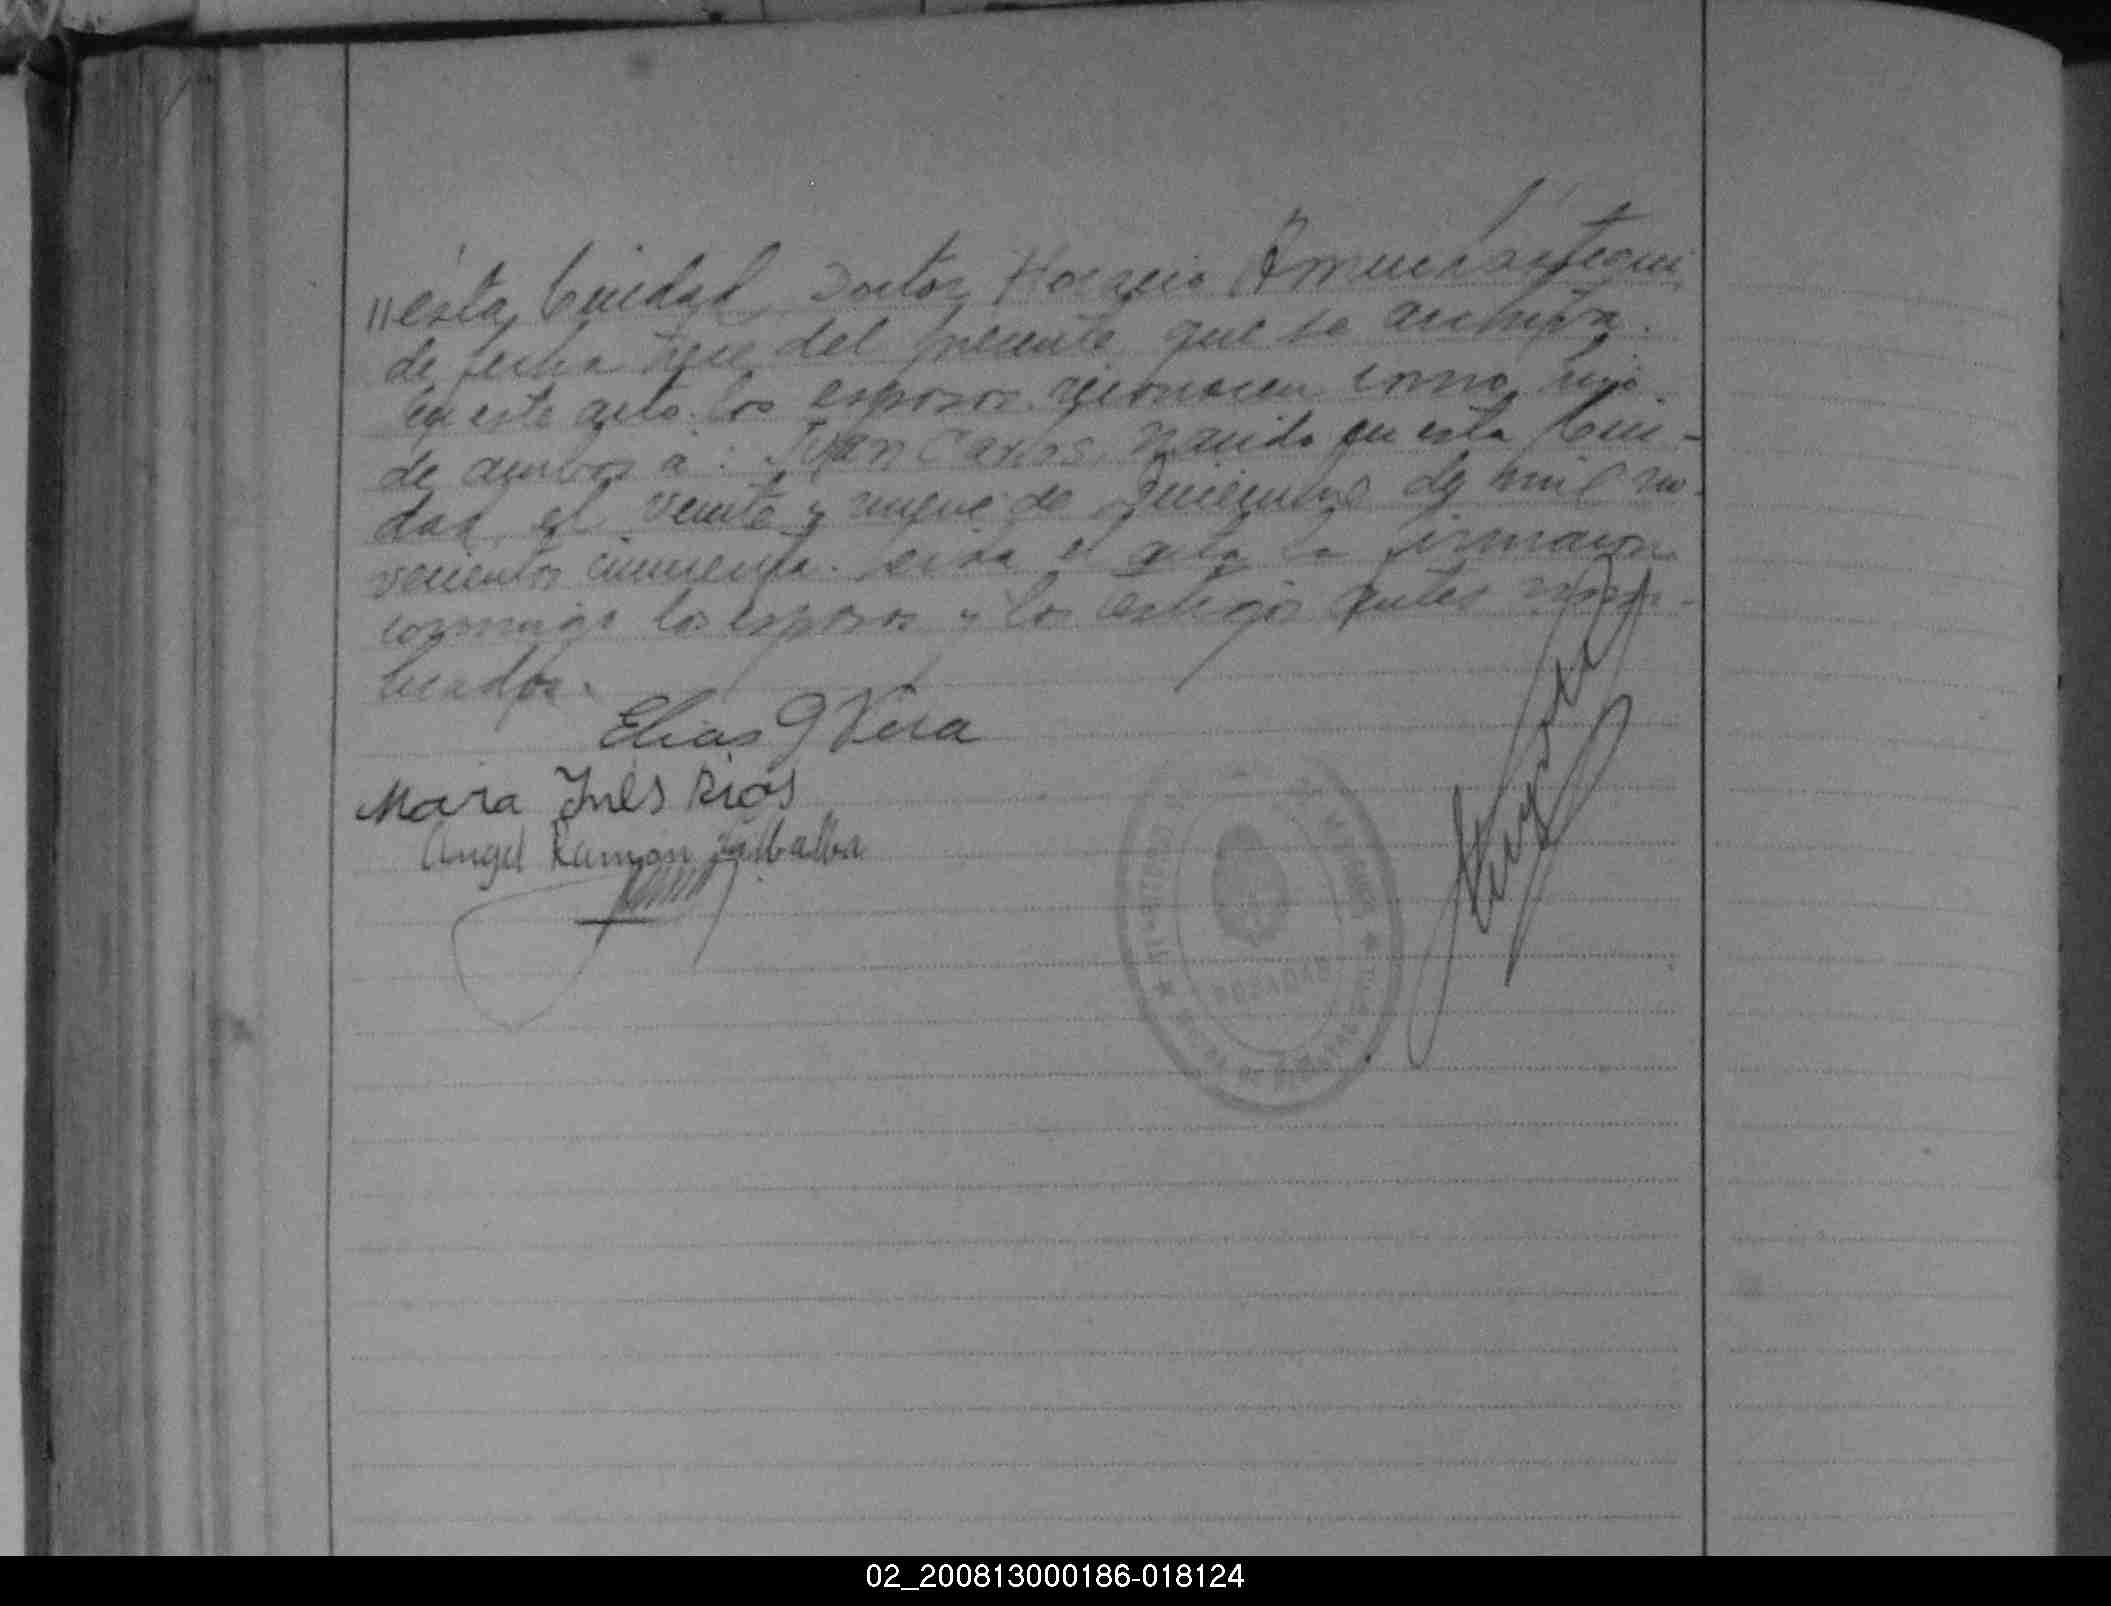 "esta Ciudad, Doctor Horacio Amuchástegui
de fecha trece del presente que se archiva.
En este acto los esposos reconocen como hijo
de ambos a: Juan Carlos, nacido en esta Ciu-
dad, el veinte y nueve de Diciembre de mil no-
vecientos cincuenta. Leida el acta la firmaron
conmigo los esposos y los testigos antes nom-
brados.
Elias J Vera
Maria Inés Rios
Angel Ramón Villalba
POSADAS
02_200813000186-018124